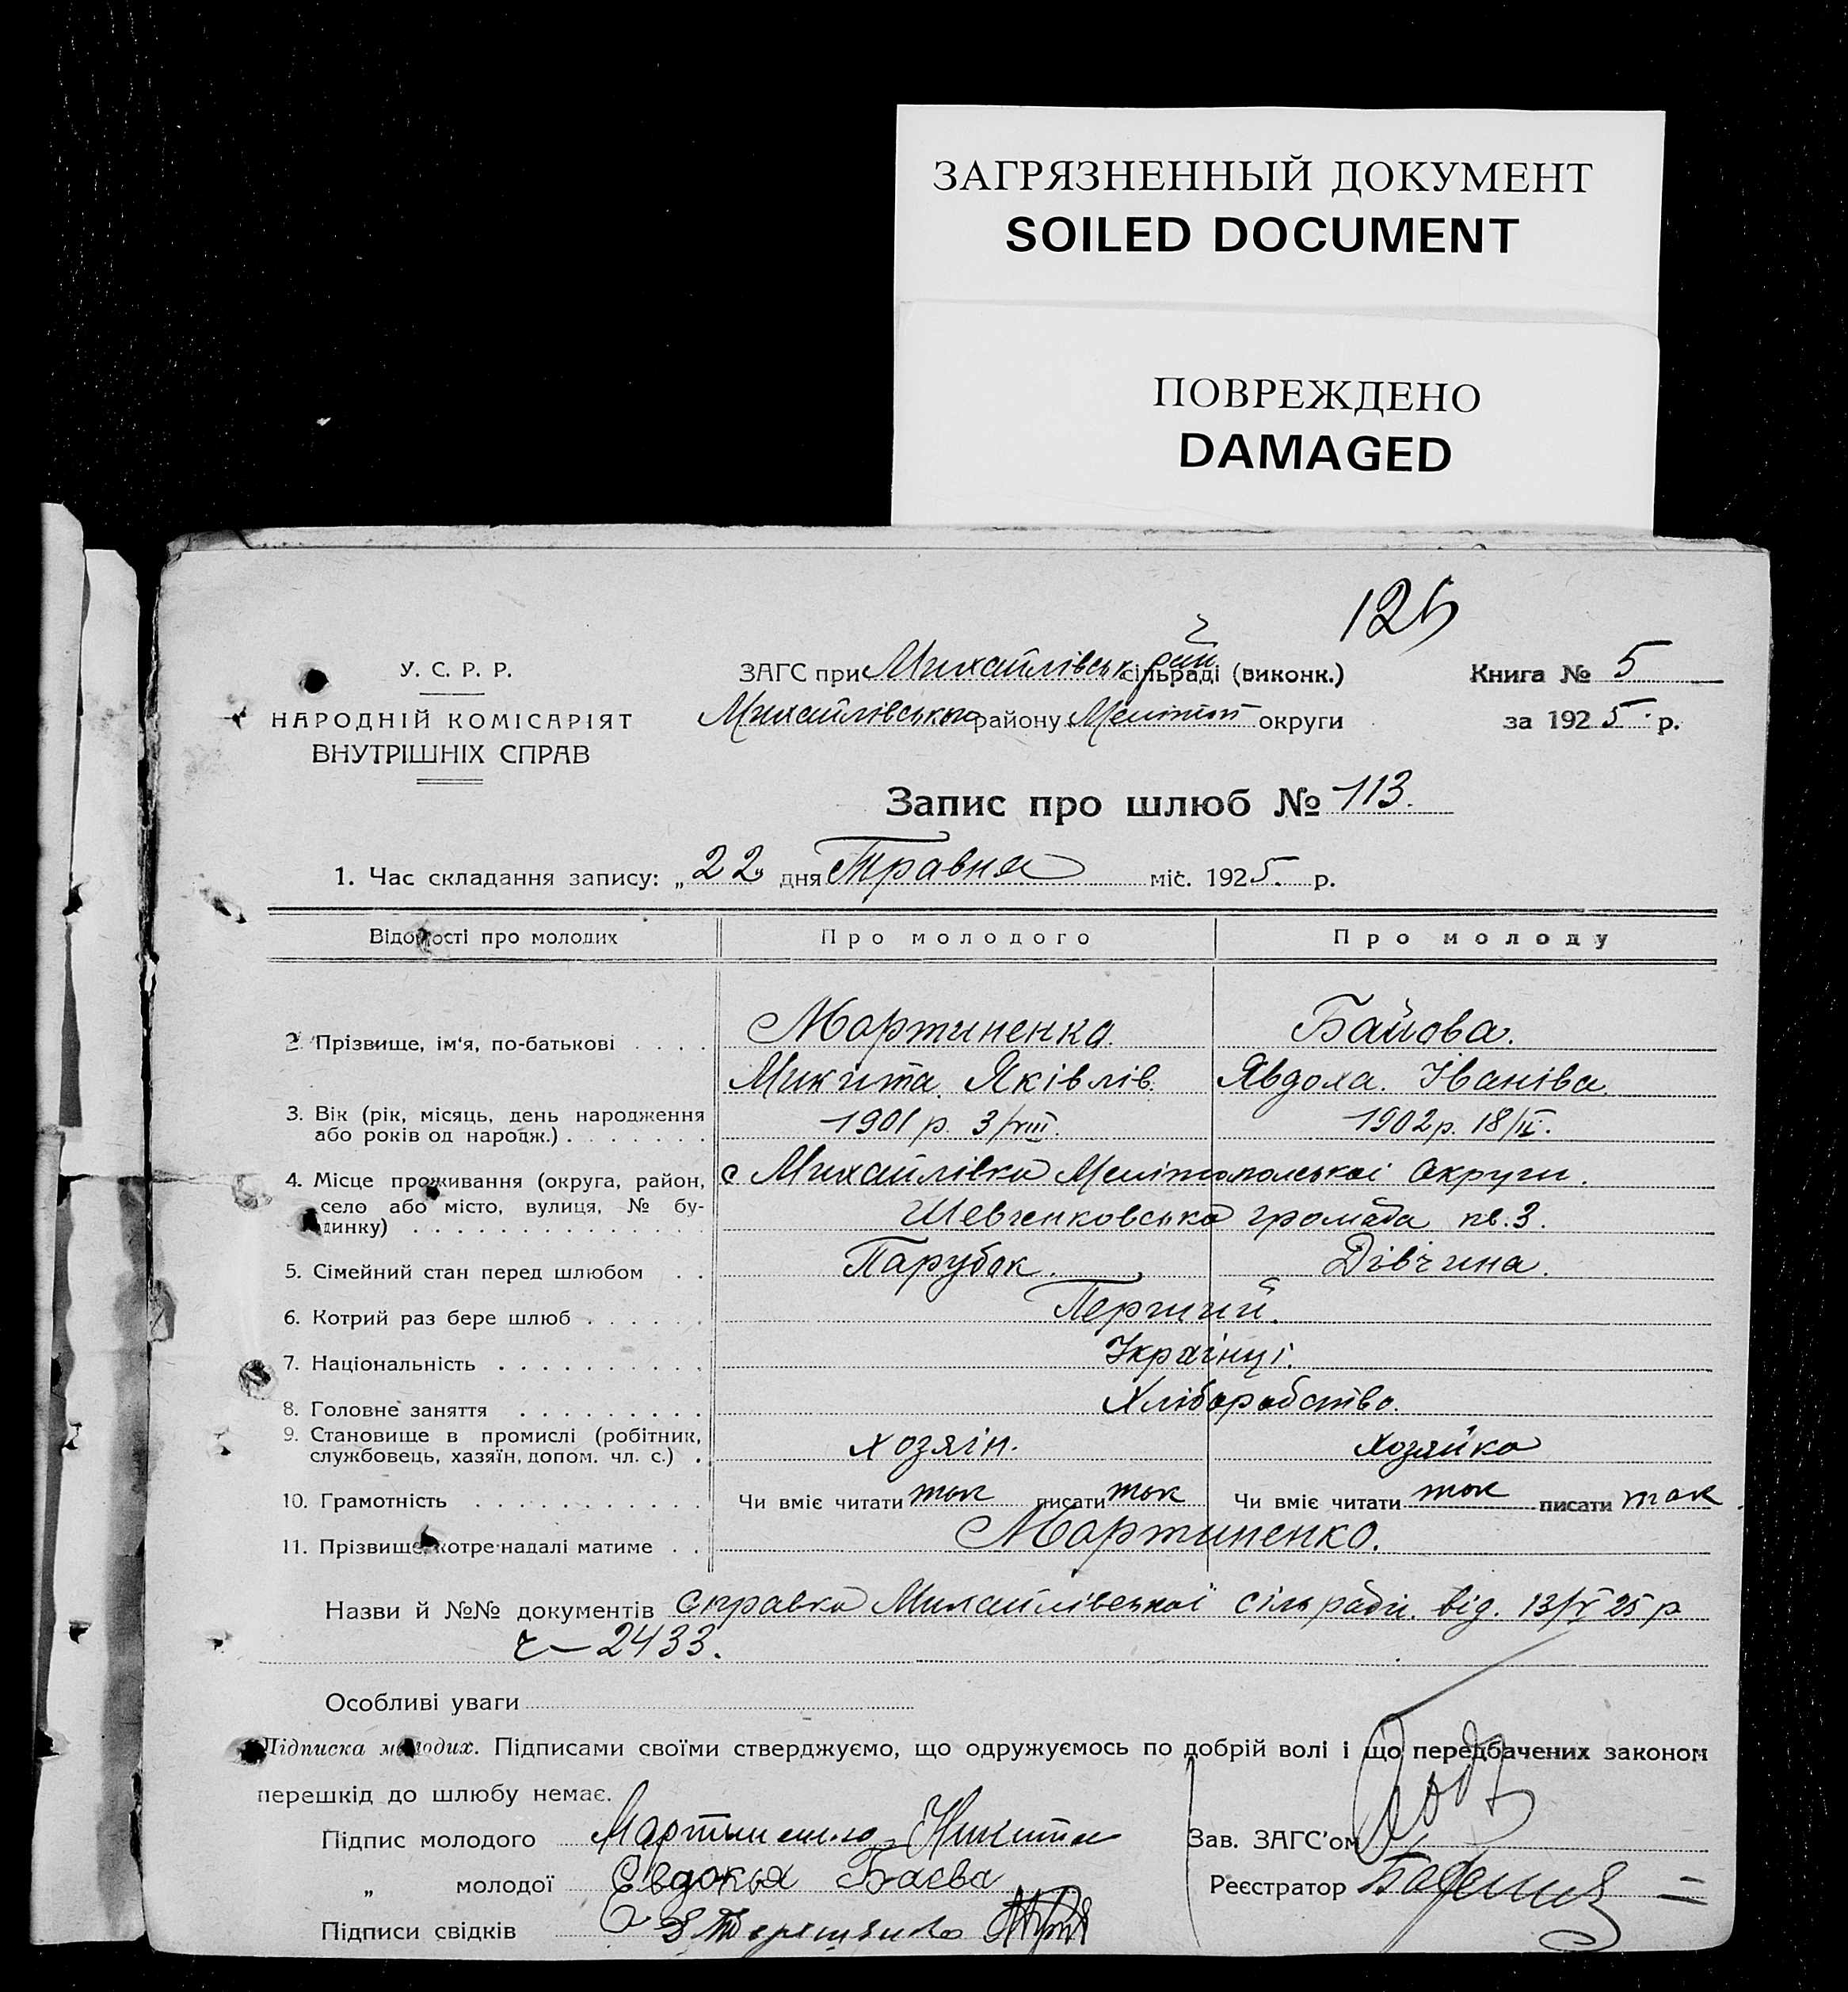 ЗАГРЯЗНЕННЫЙ ДОКУМЕНТ
SOILED DOCUMENT
ПОВРЕЖДЕНО
DAMAGED
125
У. С. Р. Р.
НАРОДНІЙ КОМІСАРІЯТ
ВНУТРІШНІХ СПРАВ
ЗАГС при Михайлівськ рай сільраді (виконк.)
Михайлівського району Меліт округи
Книга № 5
за 1925 р.
Запис про шлюб № 113.
1. Час складання запису: „22" дня Травня міс. 1925. р.
Відомості про молодих Про молодого Про молоду
2. Прізвище, ім'я, по-батькові . . . . Мартиненко. Байова.
Микита Яківлів. Явдоха. Іванівa.
3. Вік (рік, місяць, день народження
або років од народж.) . . . . . . . 1901 р. 3/VIII. 1902 р. 18/II.
4. Місце проживання (округа, район, с Михайлівка Мелітопольскоі Округи.
село або місто, вулиця, № бу-
динку) . . . . . . . . . . . . Шевченковська громада кв. 3.
5. Сімейний стан перед шлюбом . . Парубок. Дівчина.
6. Котрий раз бере шлюб . . . . . . Перший.
7. Національність . . . . . . . . . . Українці.
8. Головне заняття . . . . . . . . . Хліборобство.
9. Становище в промислі (робітник,
службовець, хазяїн, допом. чл. с.) . хозяін. хозяйка
10. Грамотність . . . . . . . . . . . Чи вміє читати так писати так Чи вміє читати так писати так
11. Прізвище, котре надалі матиме . . Мартиненко.
Назви й №№ документів Справка Михайлівської сільради. від. 13/V 25 р
ч—2433.
Особливі уваги
Підписка молодих. Підписами своїми стверджуємо, що одружуємось по добрій волі і що передбачених законом
перешкід до шлюбу немає.
Підпис молодого Мартиненко Никита
Зав. ЗАГС'ом
„ молодої Евдокья Баева
Реєстратор
Підписи свідків